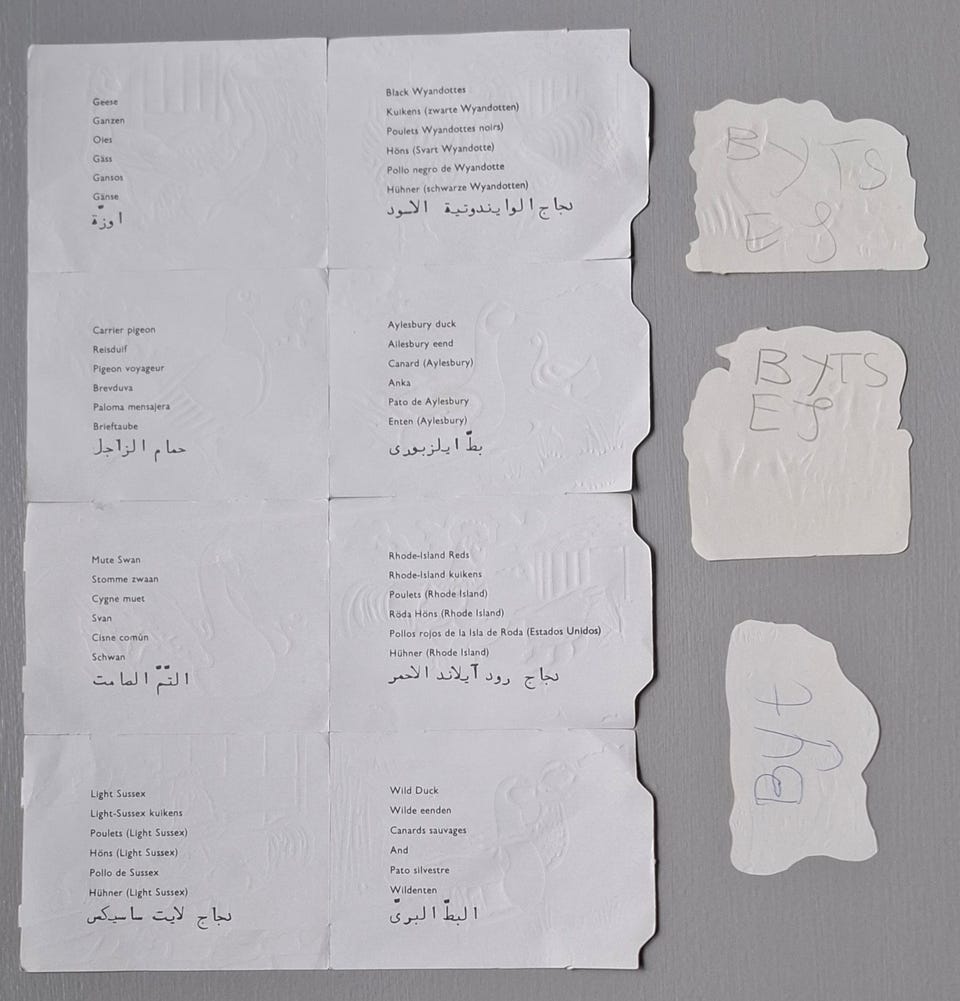 Geese
Ganzen
Oies
Gäss
Gansos
Gänse
اوزّة
Black Wyandottes
Kuikens (zwarte Wyandotten)
Poulets Wyandottes noirs)
Höns (Svart Wyandotte)
Pollo negro de Wyandotte
Hühner (schwarze Wyandotten)
نجاج الوايندوتية الاسود
Carrier pigeon
Reisduif
Pigeon voyageur
Brevduva
Paloma mensajera
Brieftaube
حمام الزاجل
Aylesbury duck
Ailesbury eend
Canard (Aylesbury)
Anka
Pato de Aylesbury
Enten (Aylesbury)
بطّ ايلزبورى
Mute Swan
Stomme zwaan
Cygne muet
Svan
Cisne común
Schwan
التّمّ الصامت
Rhode-Island Reds
Rhode-Island kuikens
Poulets (Rhode Island)
Röda Höns (Rhode Island)
Pollos rojos de la Isla de Roda (Estados Unidos)
Hühner (Rhode Island)
نجاج رود آيلاند الاحمر
Light Sussex
Light-Sussex kuikens
Poulets (Light Sussex)
Höns (Light Sussex)
Pollo de Sussex
Hühner (Light Sussex)
نجاج لايت ساسيكس
Wild Duck
Wilde eenden
Canards sauvages
And
Pato silvestre
Wildenten
البطّ البرىّ
BYTS
EJ
BYTS
EJ
Byt